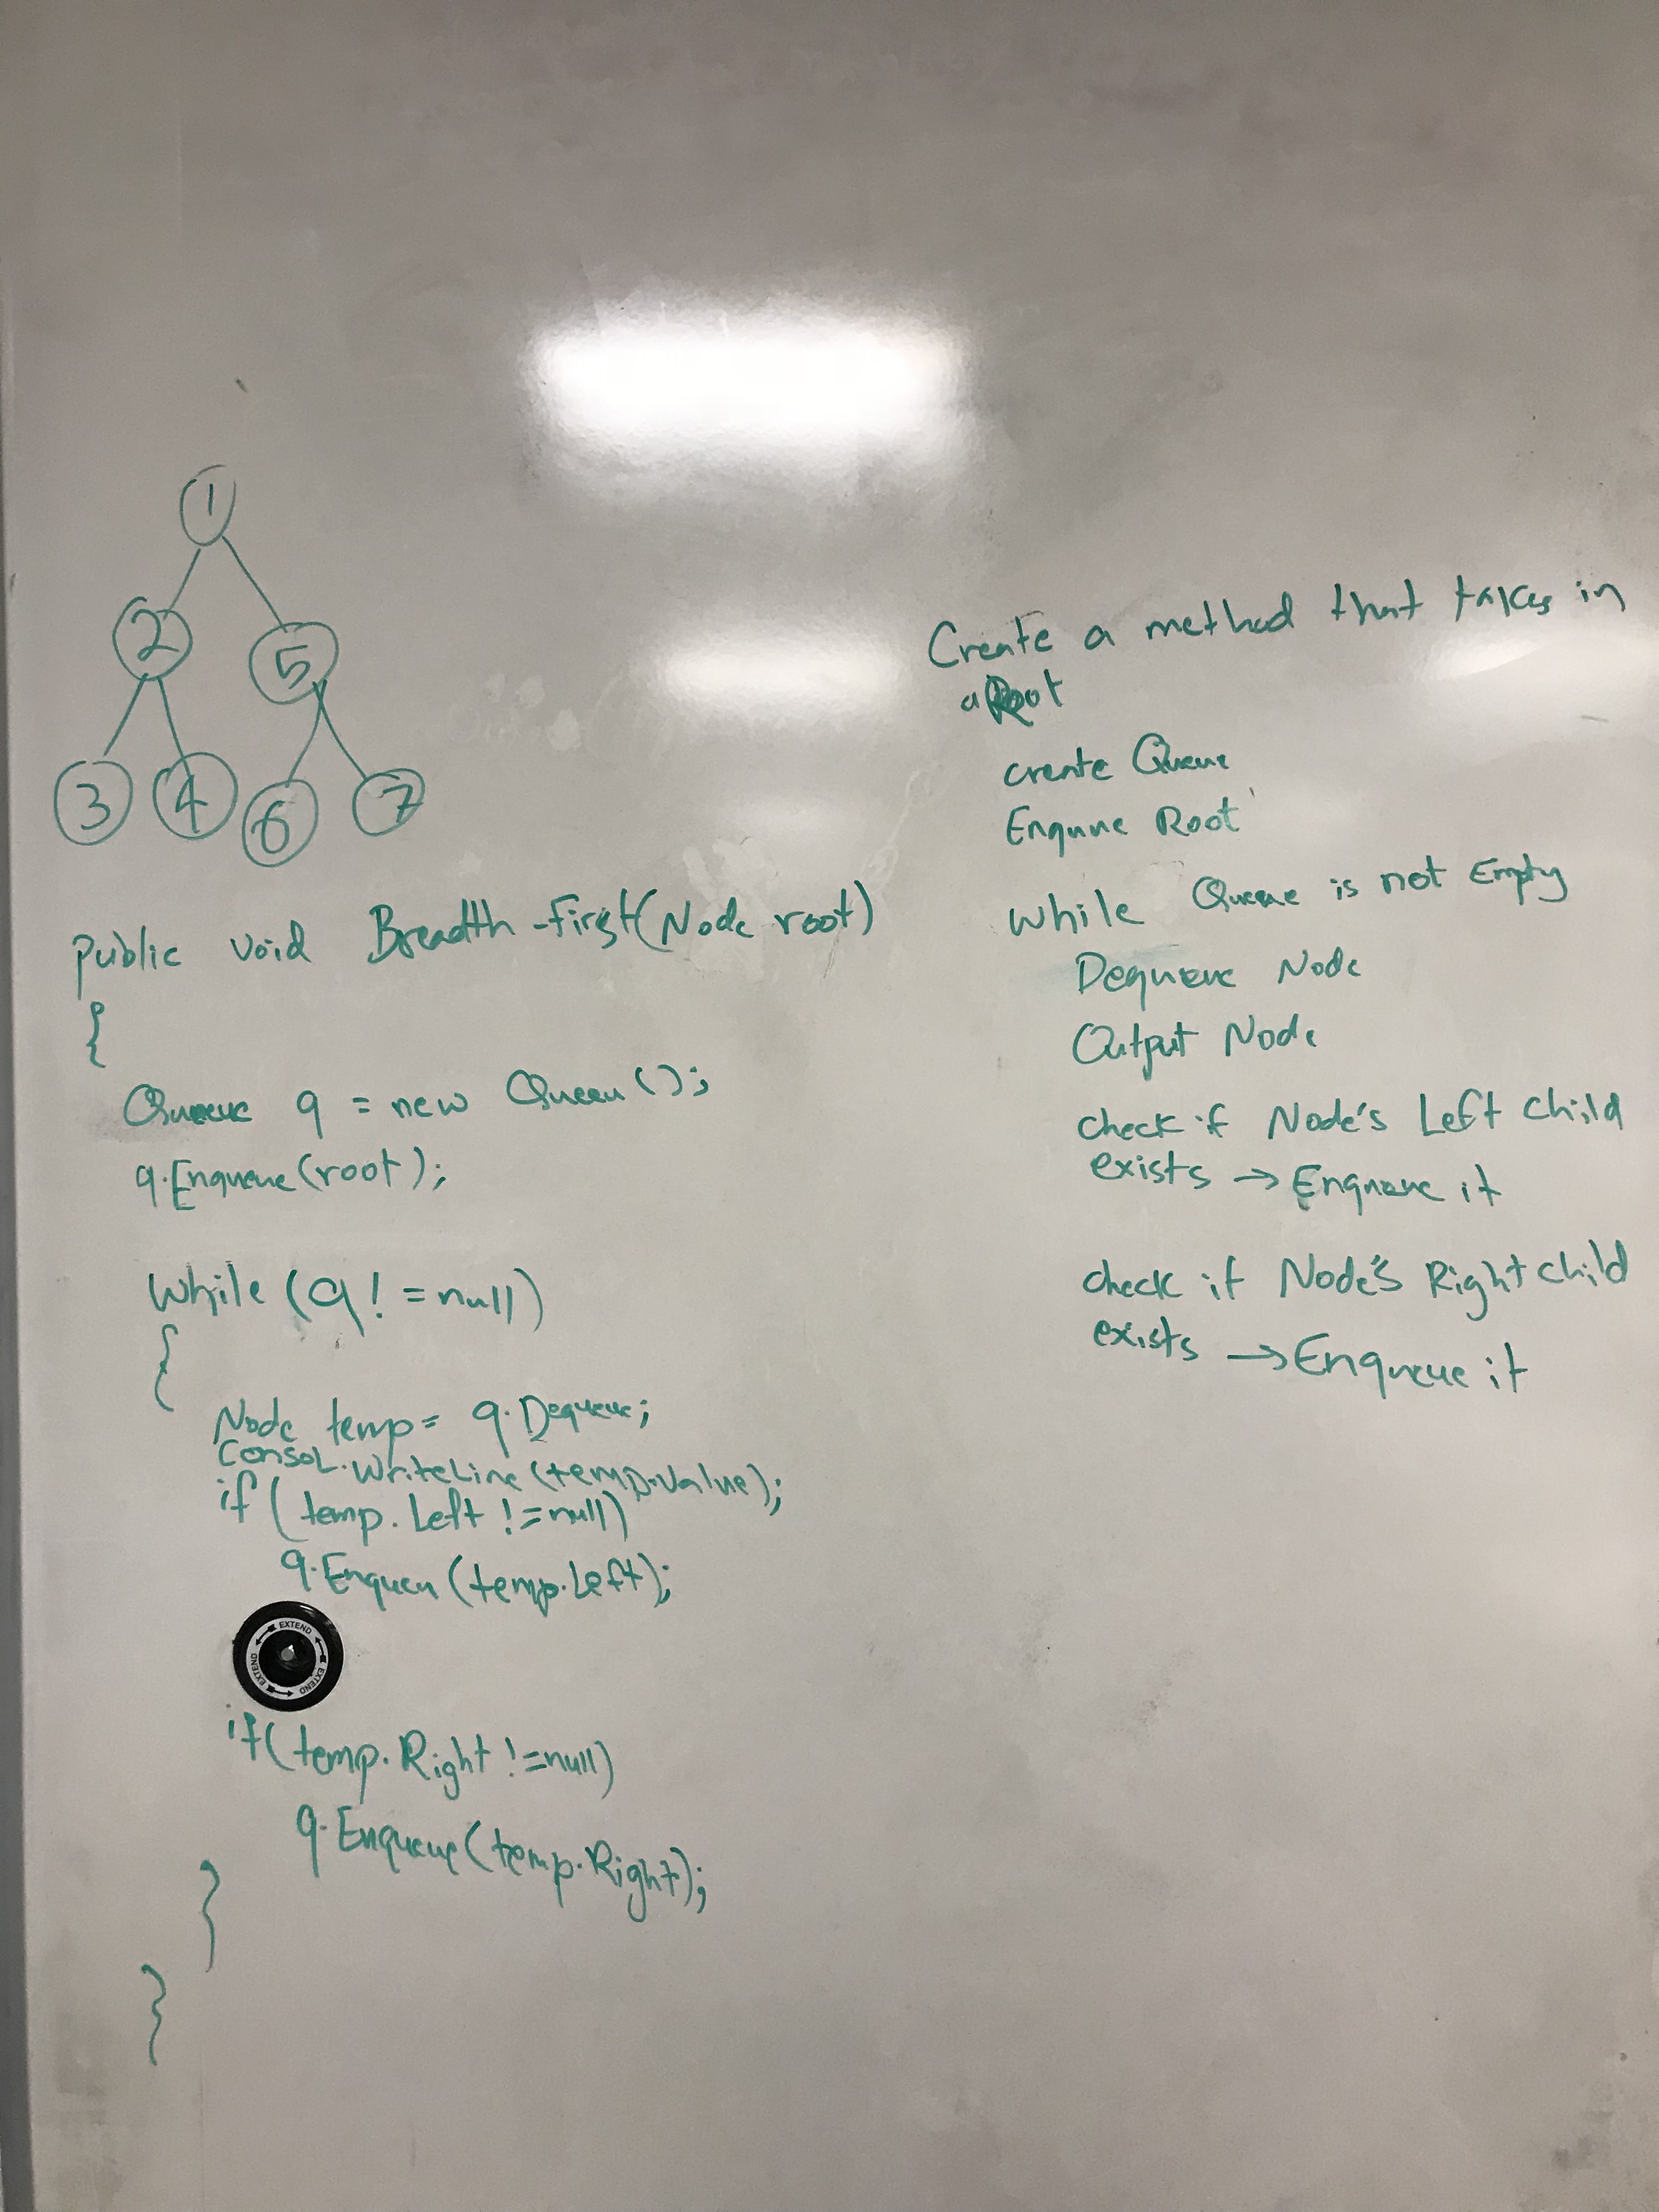 1
2 5
3 4 6 7
public void Breadth-First(Node root)
{
Queue q = new Queeu();
q.Enqueue(root);
While (q != null)
{
Node temp = q.Dequeue;
Consol.WriteLine(temp.value);
if (temp.Left != null)
q.Enqueu(temp.Left);
EXTEND EXTEND EXTEND EXTEND
if(temp.Right != null)
q.Enqueue(temp.Right);
}
}
Create a method that takes in
a Root
create Queue
Enqueue Root
while Queue is not Empty
Dequeue Node
Output Node
check if Node's Left child
exists → Enqueue it
check if Node's Right child
exists → Enqueue it